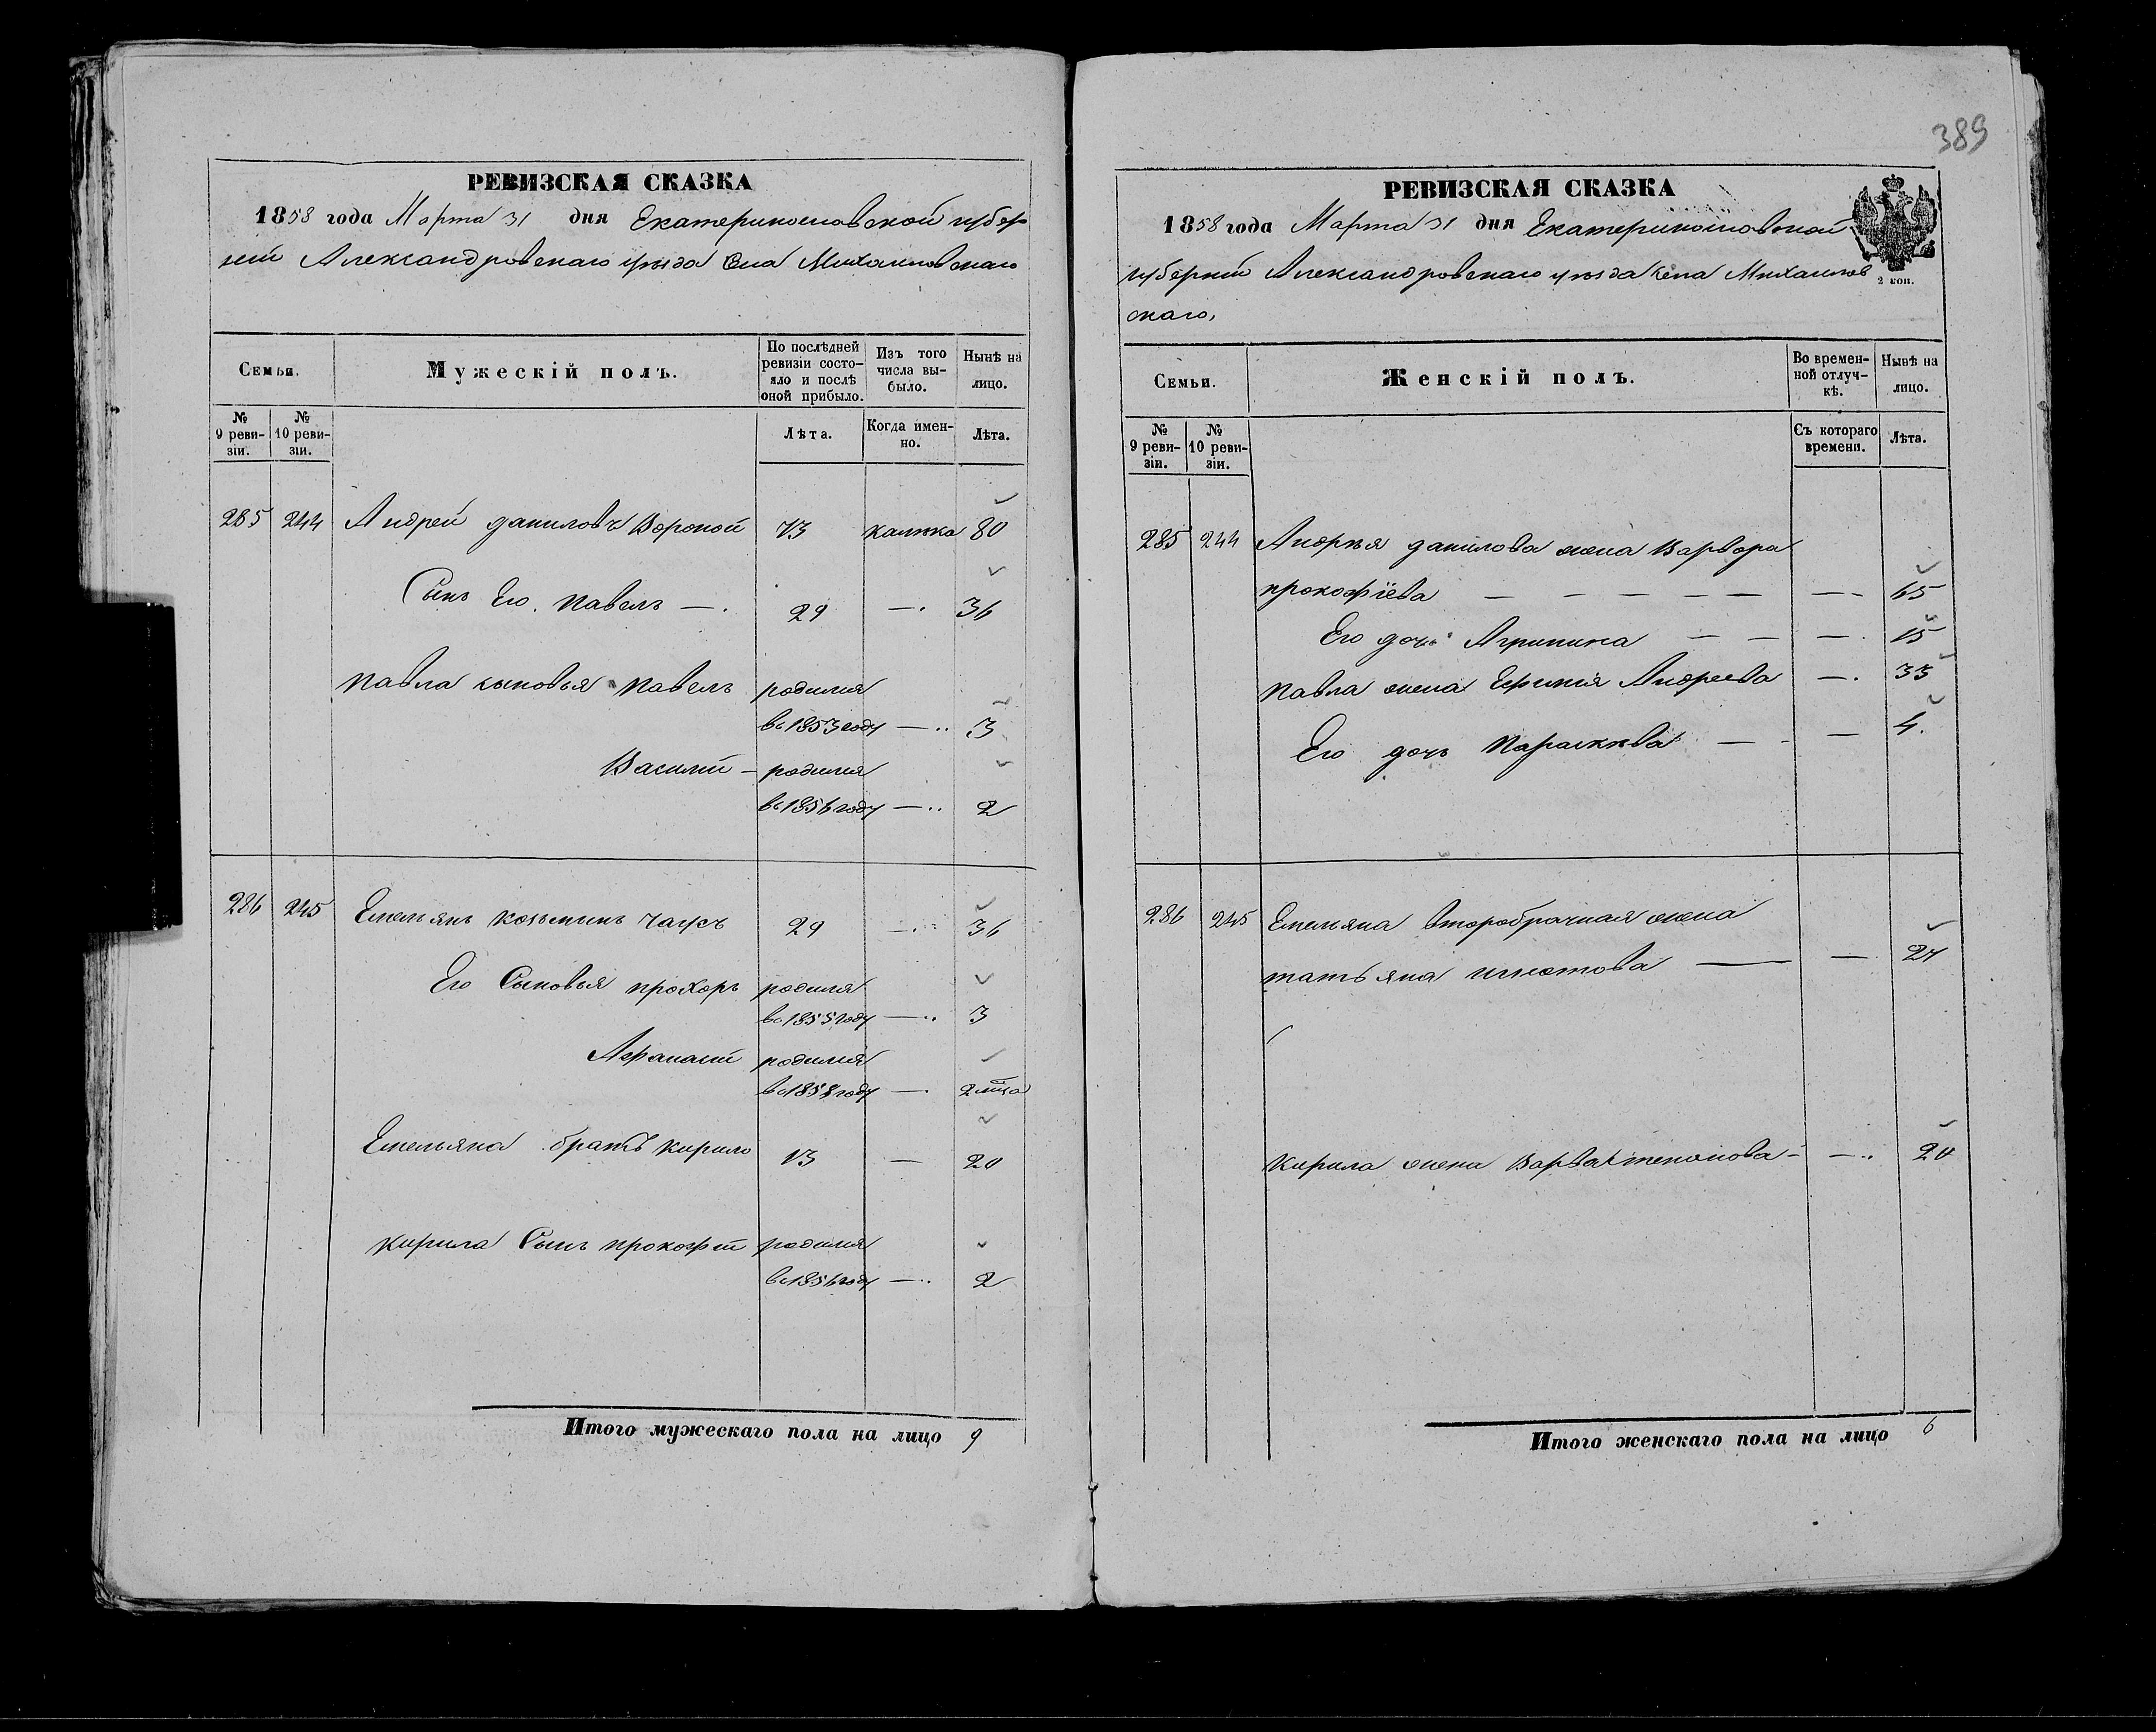 389
РЕВИЗСКАЯ СКАЗКА
1858 года Марта 31 дня Екатеринославской губер
ніи Александровскаго уѣзда Села Михайловскаго
Семьи.
Мужескій полъ.
По послѣдней ревизіи состо-
яло и послѣ оной прибыло.
Изъ того числа вы-
было.
Нынѣ на лицо.
№ 9 реви-
зіи.
№ 10 реви-
зіи.
Лѣта.
Когда имен-
но.
Лѣта.
285 244 Андрей даниловъ Вороной 73 80
Сынъ Его павелъ — 29 — 36
павла сыновья павелъ родился
въ 1853 году — 3
Василий — родился
въ 1856 году — 2
286 245 Емельянъ козьминъ Чаусъ 29 — 36
Его Сыновья прохоръ родился
въ 1855 году — 3
Афанасий родился
въ 1858 году — 2 мца
Емельяна братъ кирило 13 — 20
кирила Сынъ прокофий родился
въ 1856 году — 2
Итого мужескаго пола на лицо 9
РЕВИЗСКАЯ СКАЗКА
1858 года Марта 31 дня Екатеринославской
губерніи Александровскаго уѣзда села Михайлов
скаго,
2 коп.
Семьи.
Женскій полъ.
Во времен-
ной отлуч-
кѣ.
Нынѣ на лицо.
№ 9 реви-
зіи.
№ 10 реви-
зіи.
Съ котораго времени.
Лѣта.
285 244 Андрея данилова жена Варвара
прокофіева — 65
Его дочь Агрипина — — — 15
павла жена Ефимія Андреева — 33
Его дочь параскева — — 4.
286 245 Емельяна второбрачная жена
татьяна игнатова — — 27
кирила жена — 20
Итого женскаго пола на лицо 6